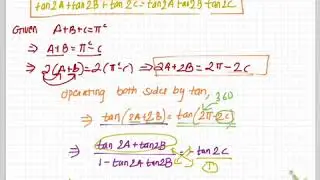 tan2A+tan2B+tan2C=tan2A tan2B tan2C
Given A+B+C=πᶜ
⇒ A+B=πᶜ-C
⇒ 2(A+B)=2(πᶜ-C) ⇒ 2A+2B=2π-2C
Operating both sides by tan,
360
⇒ tan(2A+2B)=tan(2π-2C)
⇒ tan2A+tan2B / 1-tan2A tan2B = -tan2C
①